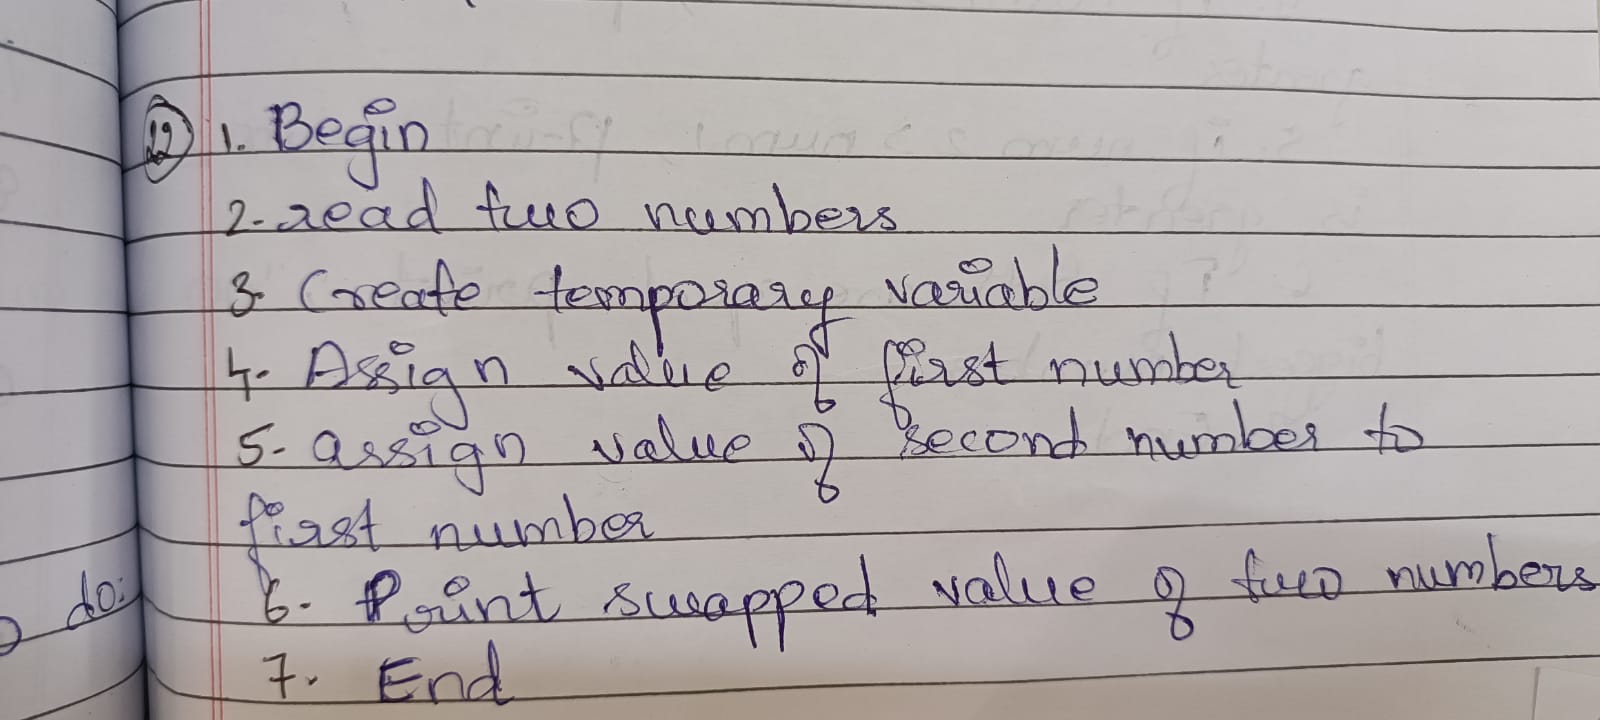 22 1. Begin
2- read two numbers
3- Create temporary variable
4- Assign value of first number
5- assign value of second number to
first number
do:
6- Print swapped value of two numbers
7. End